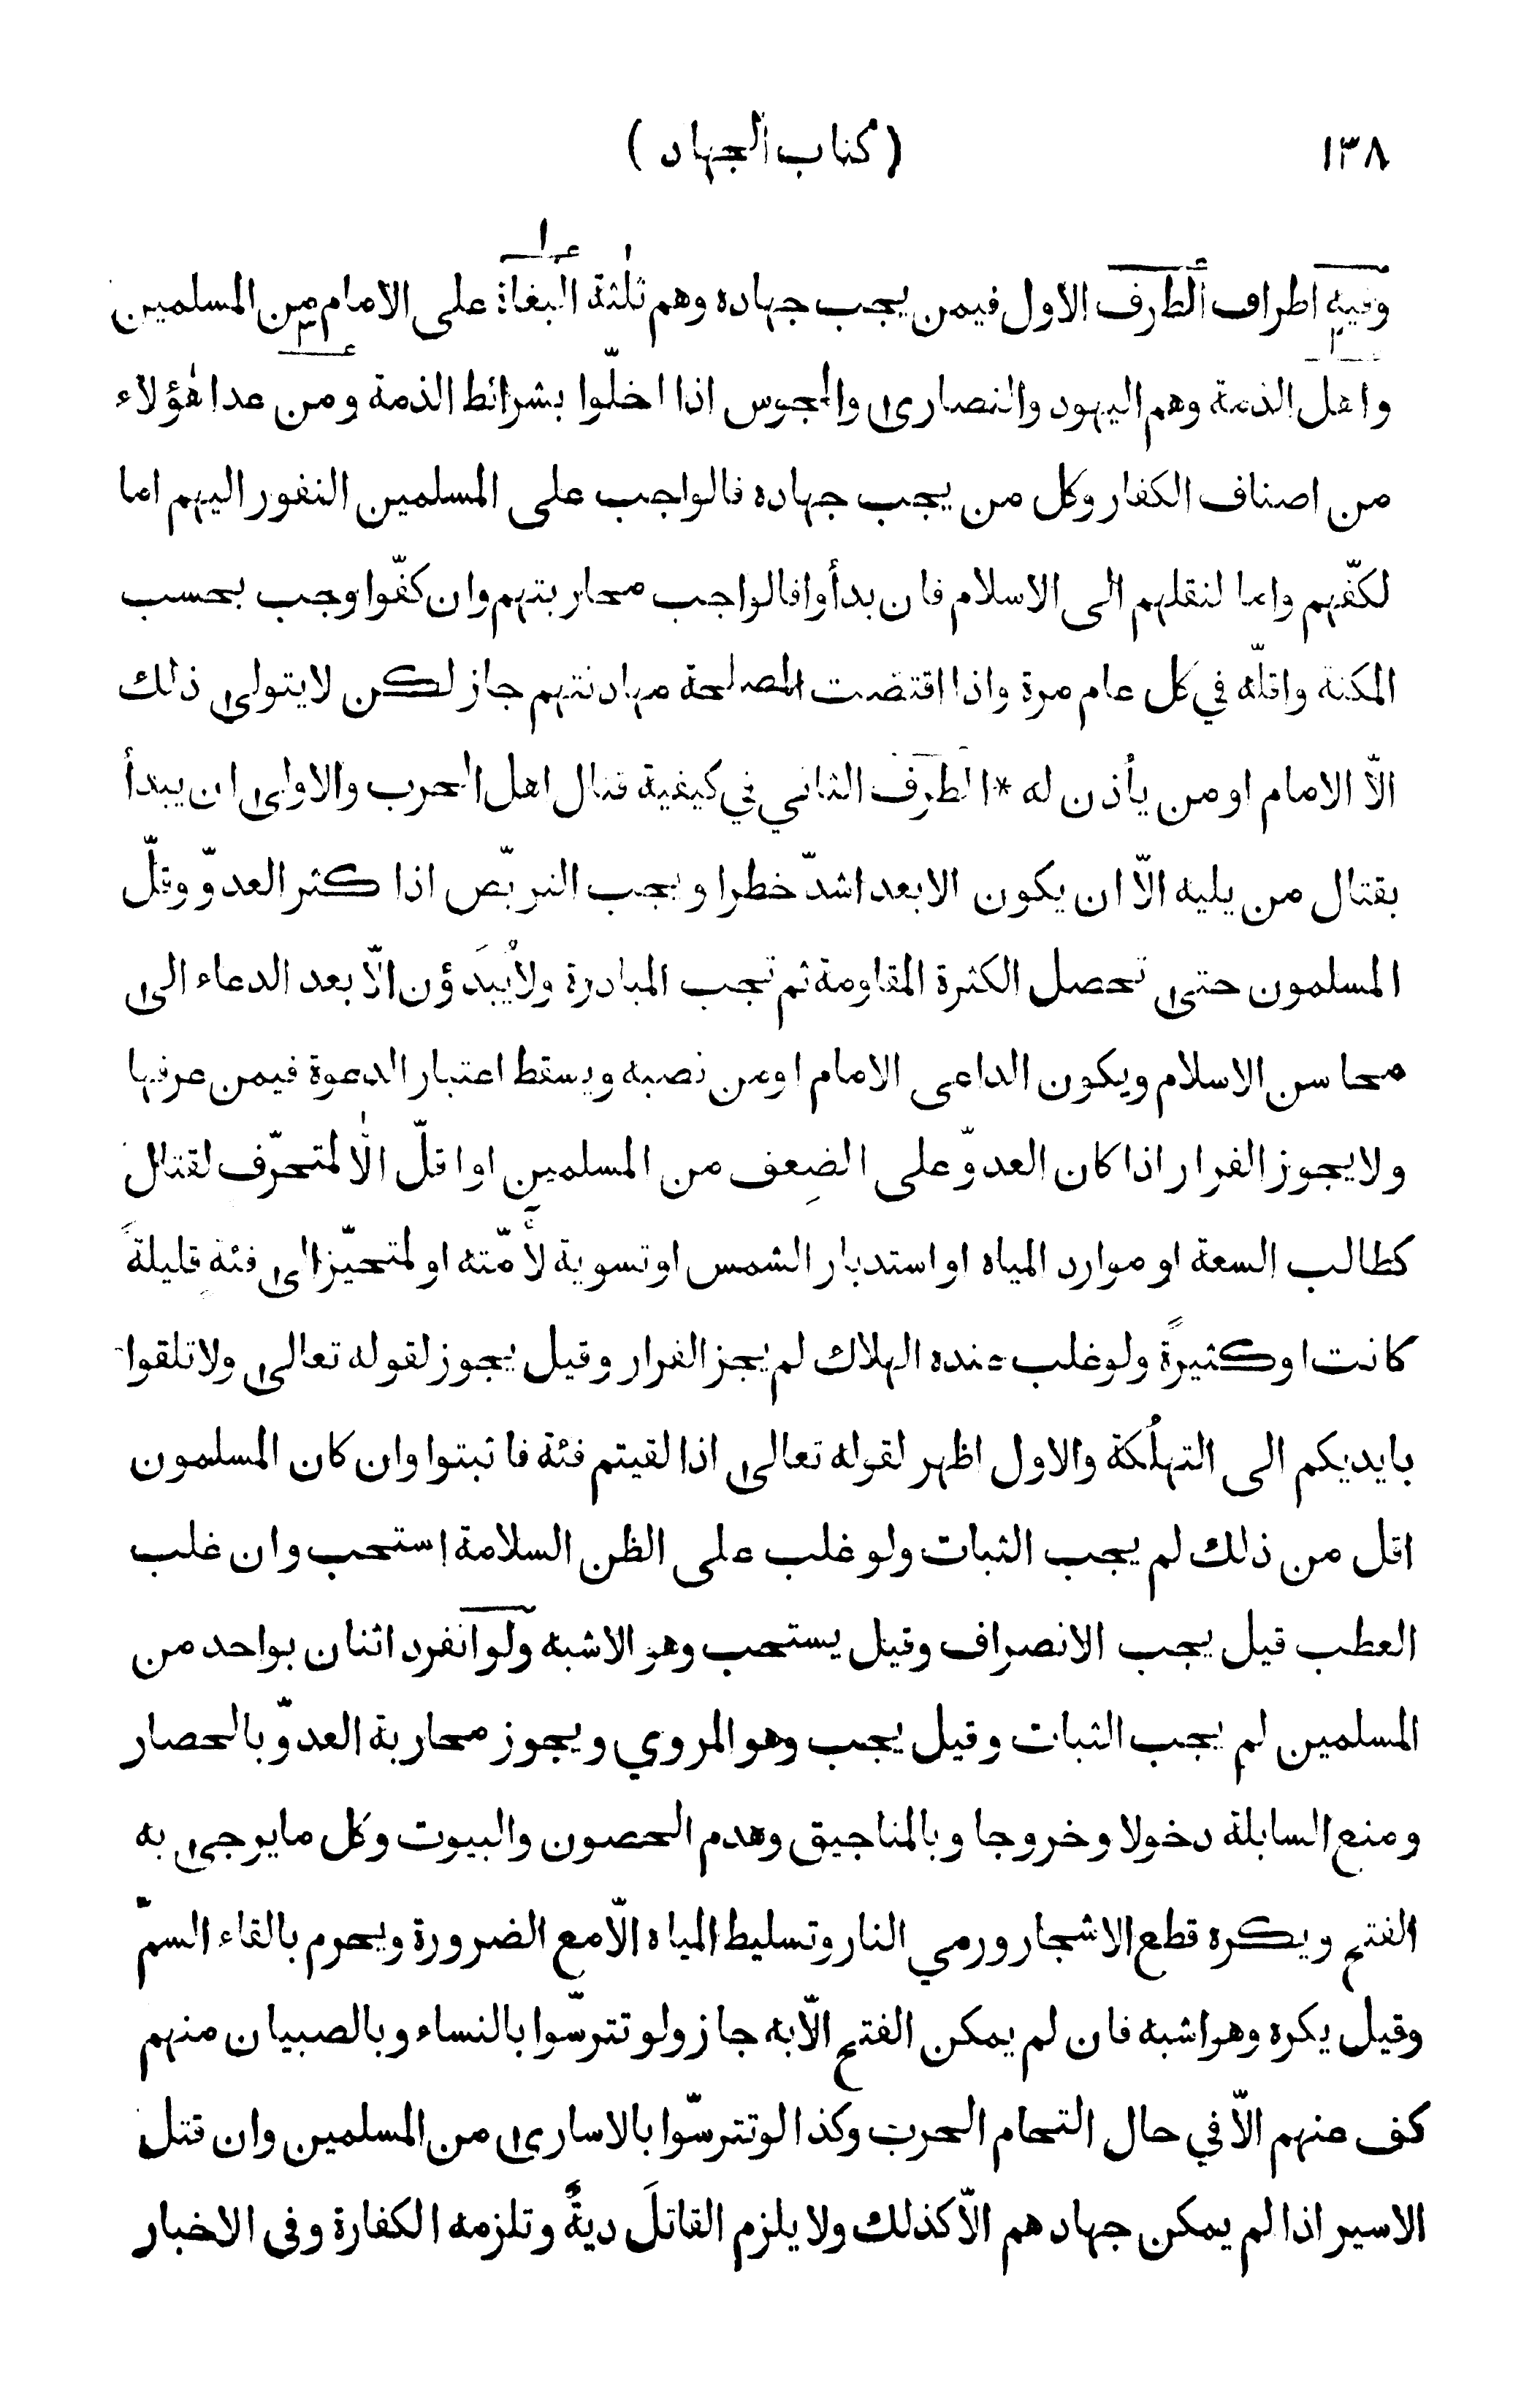 ١٣٨ (كتاب الجهاد)
وفيه اطراف الطرف الاول فيمن يجب جهاده وهم ثلٰثة البغاة على الامام من المسلمين
واهل الذمة وهم اليهود والنصارى والمجوس اذا اخلّوا بشرائط الذمة ومن عدا هٰؤلاء
من اصناف الكفار وكل من يجب جهاده فالواجب على المسلمين النفور اليهم اما
لكفّهم واما لنقلهم الى الاسلام فان بدأوا فالواجب محاربتهم وان كفّوا وجب بحسب
المكنة واقلّه في كل عام مرة واذا اقتضت المصلحة مهادنتهم جاز لكن لا يتولى ذلك
الّا الامام او من يأذن له * الطرف الثاني في كيفية قتال اهل الحرب والاولى ان يبدأ
بقتال من يليه الّا ان يكون الابعد اشدّ خطرا ويجب التربّص اذا كثر العدوّ وقلّ
المسلمون حتى تحصل الكثرة المقاومة ثم تجب المبادرة ولا يُبدَؤن الّا بعد الدعاء الى
محاسن الاسلام ويكون الداعى الامام او من نصبه ويسقط اعتبار الدعوة فيمن عرفها
ولا يجوز الفرار اذا كان العدوّ على الضِعف من المسلمين او اقلّ الّا لمتحرّف لقتال
كطالب السعة او موارد المياه او استدبار الشمس او تسوية لأمّته او لمتحيّز الى فئةٍ قليلةً
كانت او كثيرةً ولو غلب عنده الهلاك لم يجز الفرار وقيل يجوز لقوله تعالى ولا تلقوا
بايديكم الى التهلُكة والاول اظهر لقوله تعالى اذا لقيتم فئة فاثبتوا وان كان المسلمون
اقل من ذلك لم يجب الثبات ولو غلب على الظن السلامة استحب وان غلب
العطب قيل يجب الانصراف وقيل يستحب وهو الاشبه ولو انفرد اثنان بواحد من
المسلمين لم يجب الثبات وقيل يجب وهو المروي ويجوز محاربة العدوّ بالحصار
ومنع السابلة دخولا وخروجا وبالمناجيق وهدم الحصون والبيوت وكل ما يرجى به
الفتح ويكره قطع الاشجار ورمي النار وتسليط المياه الّا مع الضرورة ويحرم بالقاء السمّ
وقيل يكره وهو اشبه فان لم يمكن الفتح الّا به جاز ولو تترّسوا بالنساء وبالصبيان منهم
كف عنهم الّا في حال التحام الحرب وكذا لو تترسّوا بالاسارى من المسلمين وان قتل
الاسير اذا لم يمكن جهادهم الّا كذلك ولا يلزم القاتلَ ديةٌ وتلزمه الكفارة وفى الاخبار